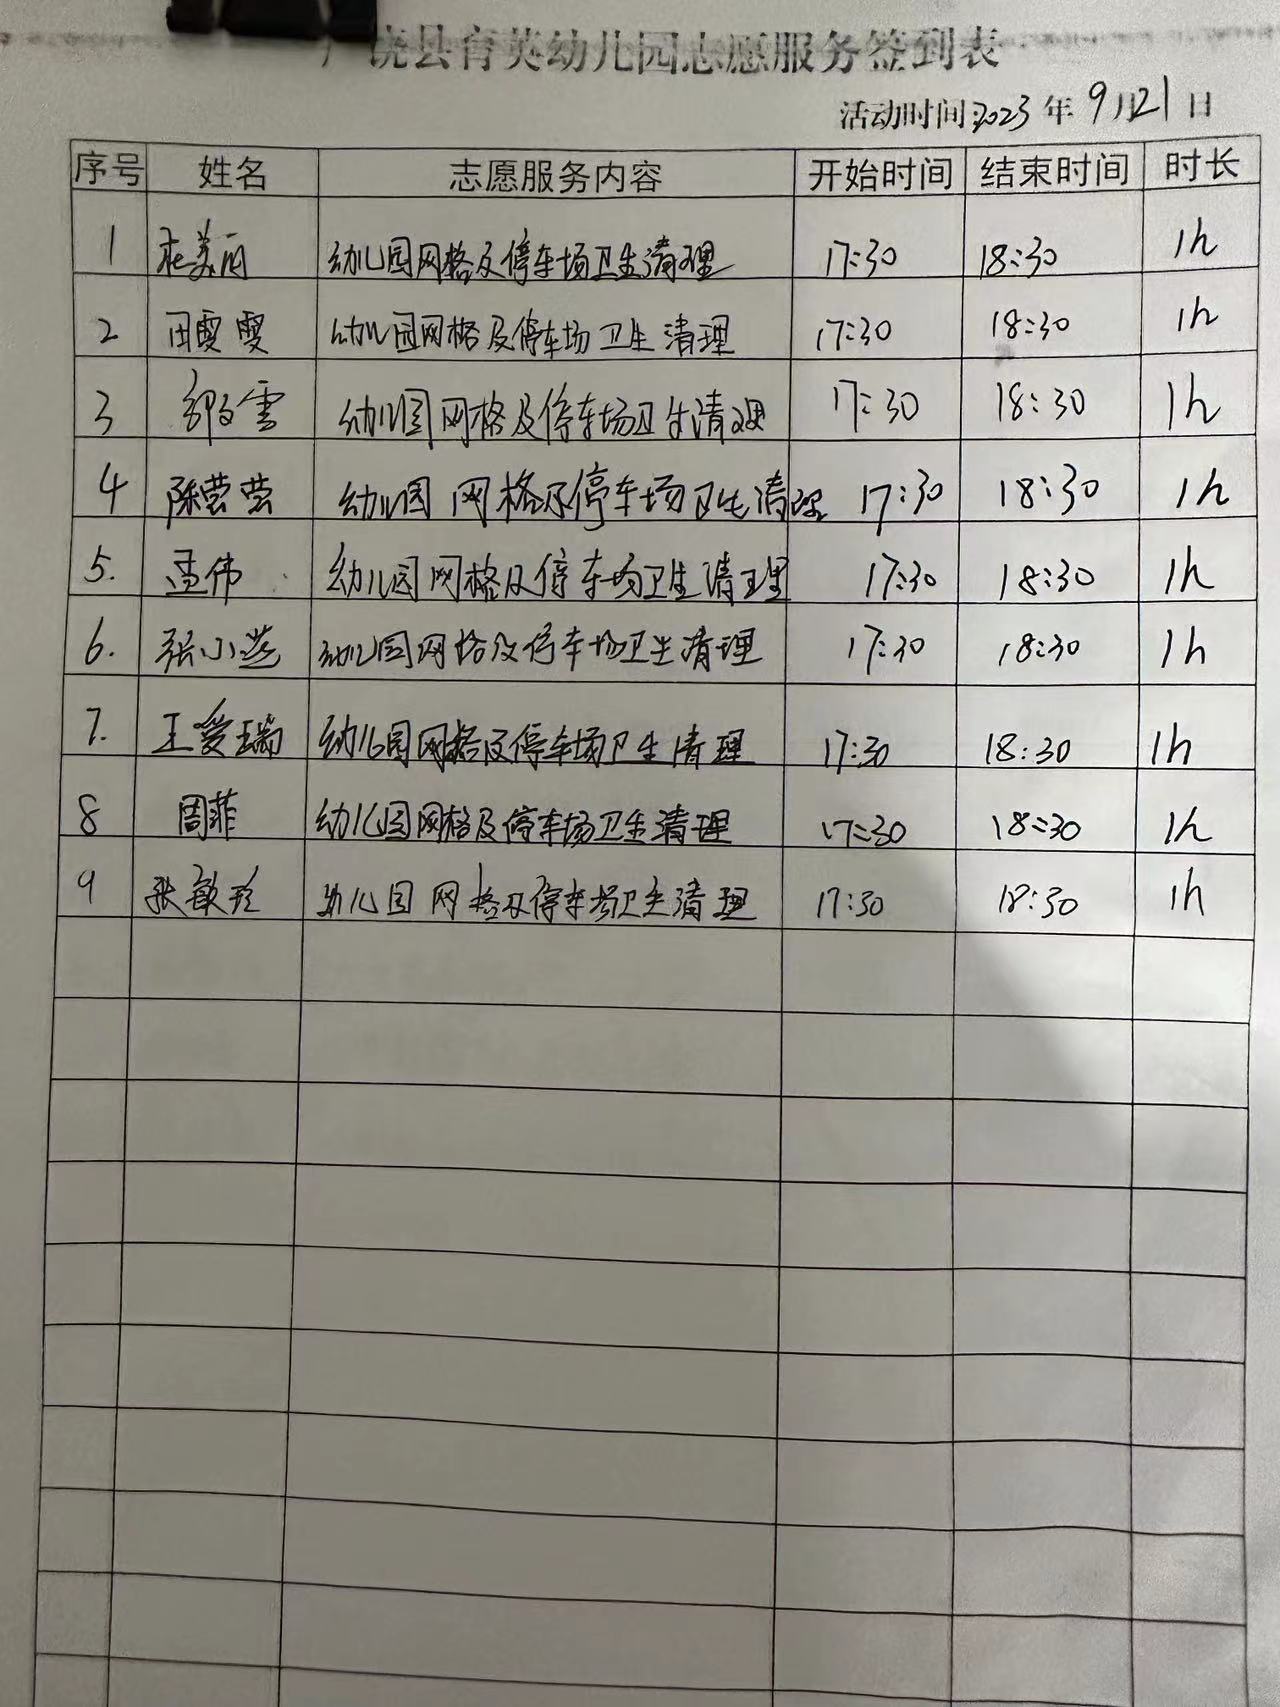 广饶县育英幼儿园志愿服务签到表
活动时间:2023年9月21日
序号 姓名 志愿服务内容 开始时间 结束时间 时长
1 杜美丽 幼儿园网格及停车场卫生清理 17:30 18:30 1h
2 田雯雯 幼儿园网格及停车场卫生清理 17:30 18:30 1h
3 幼儿园网格及停车场卫生清理 17:30 18:30 1h
4 陈莹莹 幼儿园网格及停车场卫生清理 17:30 18:30 1h
5. 孟伟 幼儿园网格及停车场卫生清理 17:30 18:30 1h
6. 张小燕 幼儿园网格及停车场卫生清理 17:30 18:30 1h
7. 王爱瑞 幼儿园网格及停车场卫生清理 17:30 18:30 1h
8 周菲 幼儿园网格及停车场卫生清理 17:30 18:30 1h
9 张敏珍 幼儿园网格及停车场卫生清理 17:30 18:30 1h